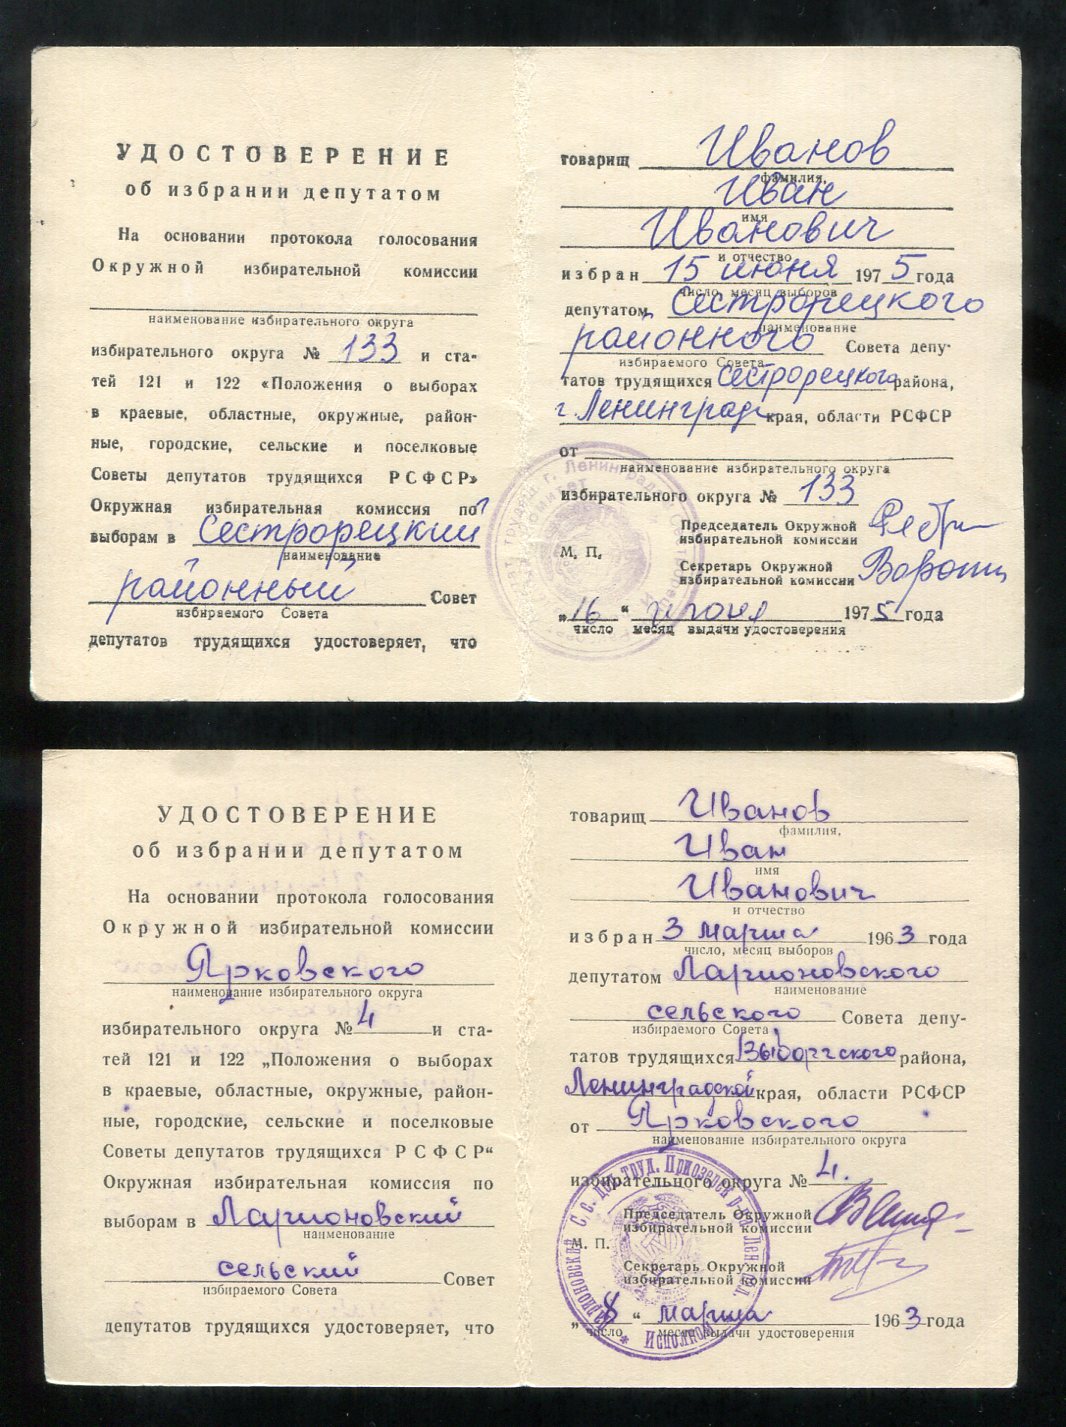 УДОСТОВЕРЕНИЕ
об избрании депутатом
На основании протокола голосования
Окружной избирательной комиссии
наименование избирательного округа
избирательного округа № 133 и ста-
тей 121 и 122 «Положения о выборах
в краевые, областные, окружные, район-
ные, городские, сельские и поселковые
Советы депутатов трудящихся РСФСР»
Окружная избирательная комиссия по
выборам в Сестрорецкий
наименование
районный Совет
избираемого Совета
депутатов трудящихся удостоверяет, что
товарищ Иванов
фамилия,
Иван
имя
Иванович
и отчество
избран 15 июня 1975 года
число, месяц выборов
депутатом Сестрорецкого
наименование
районного Совета депу-
избираемого Совета
татов трудящихся Сестрорецкого района,
г. Ленинград края, области РСФСР
от
наименование избирательного округа
избирательного округа № 133
Председатель Окружной
избирательной комиссии
М. П.
Секретарь Окружной
избирательной комиссии
„16“ июня 1975 года
число месяц выдачи удостоверения
УДОСТОВЕРЕНИЕ
об избрании депутатом
На основании протокола голосования
Окружной избирательной комиссии
Ярковского
наименование избирательного округа
избирательного округа № 4 и ста-
тей 121 и 122 „Положения о выборах
в краевые, областные, окружные, район-
ные, городские, сельские и поселковые
Советы депутатов трудящихся РСФСР“
Окружная избирательная комиссия по
выборам в Ларионовский
наименование
сельский Совет
избираемого Совета
депутатов трудящихся удостоверяет, что
товарищ Иванов
фамилия,
Иван
имя
Иванович
и отчество
избран 3 марта 1963 года
число, месяц выборов
депутатом Ларионовского
наименование
сельского Совета депу-
избираемого Совета
татов трудящихся Выборгского района,
Ленинградской края, области РСФСР
от Ярковского
наименование избирательного округа
избирательного округа № 4.
Председатель Окружной
избирательной комиссии
М. П.
Секретарь Окружной
избирательной комиссии
„8“ марта 1963 года
число месяц выдачи удостоверения
Ларионовский С. С. деп. труд. Приозерск. р-на Лен. обл.
Исполком